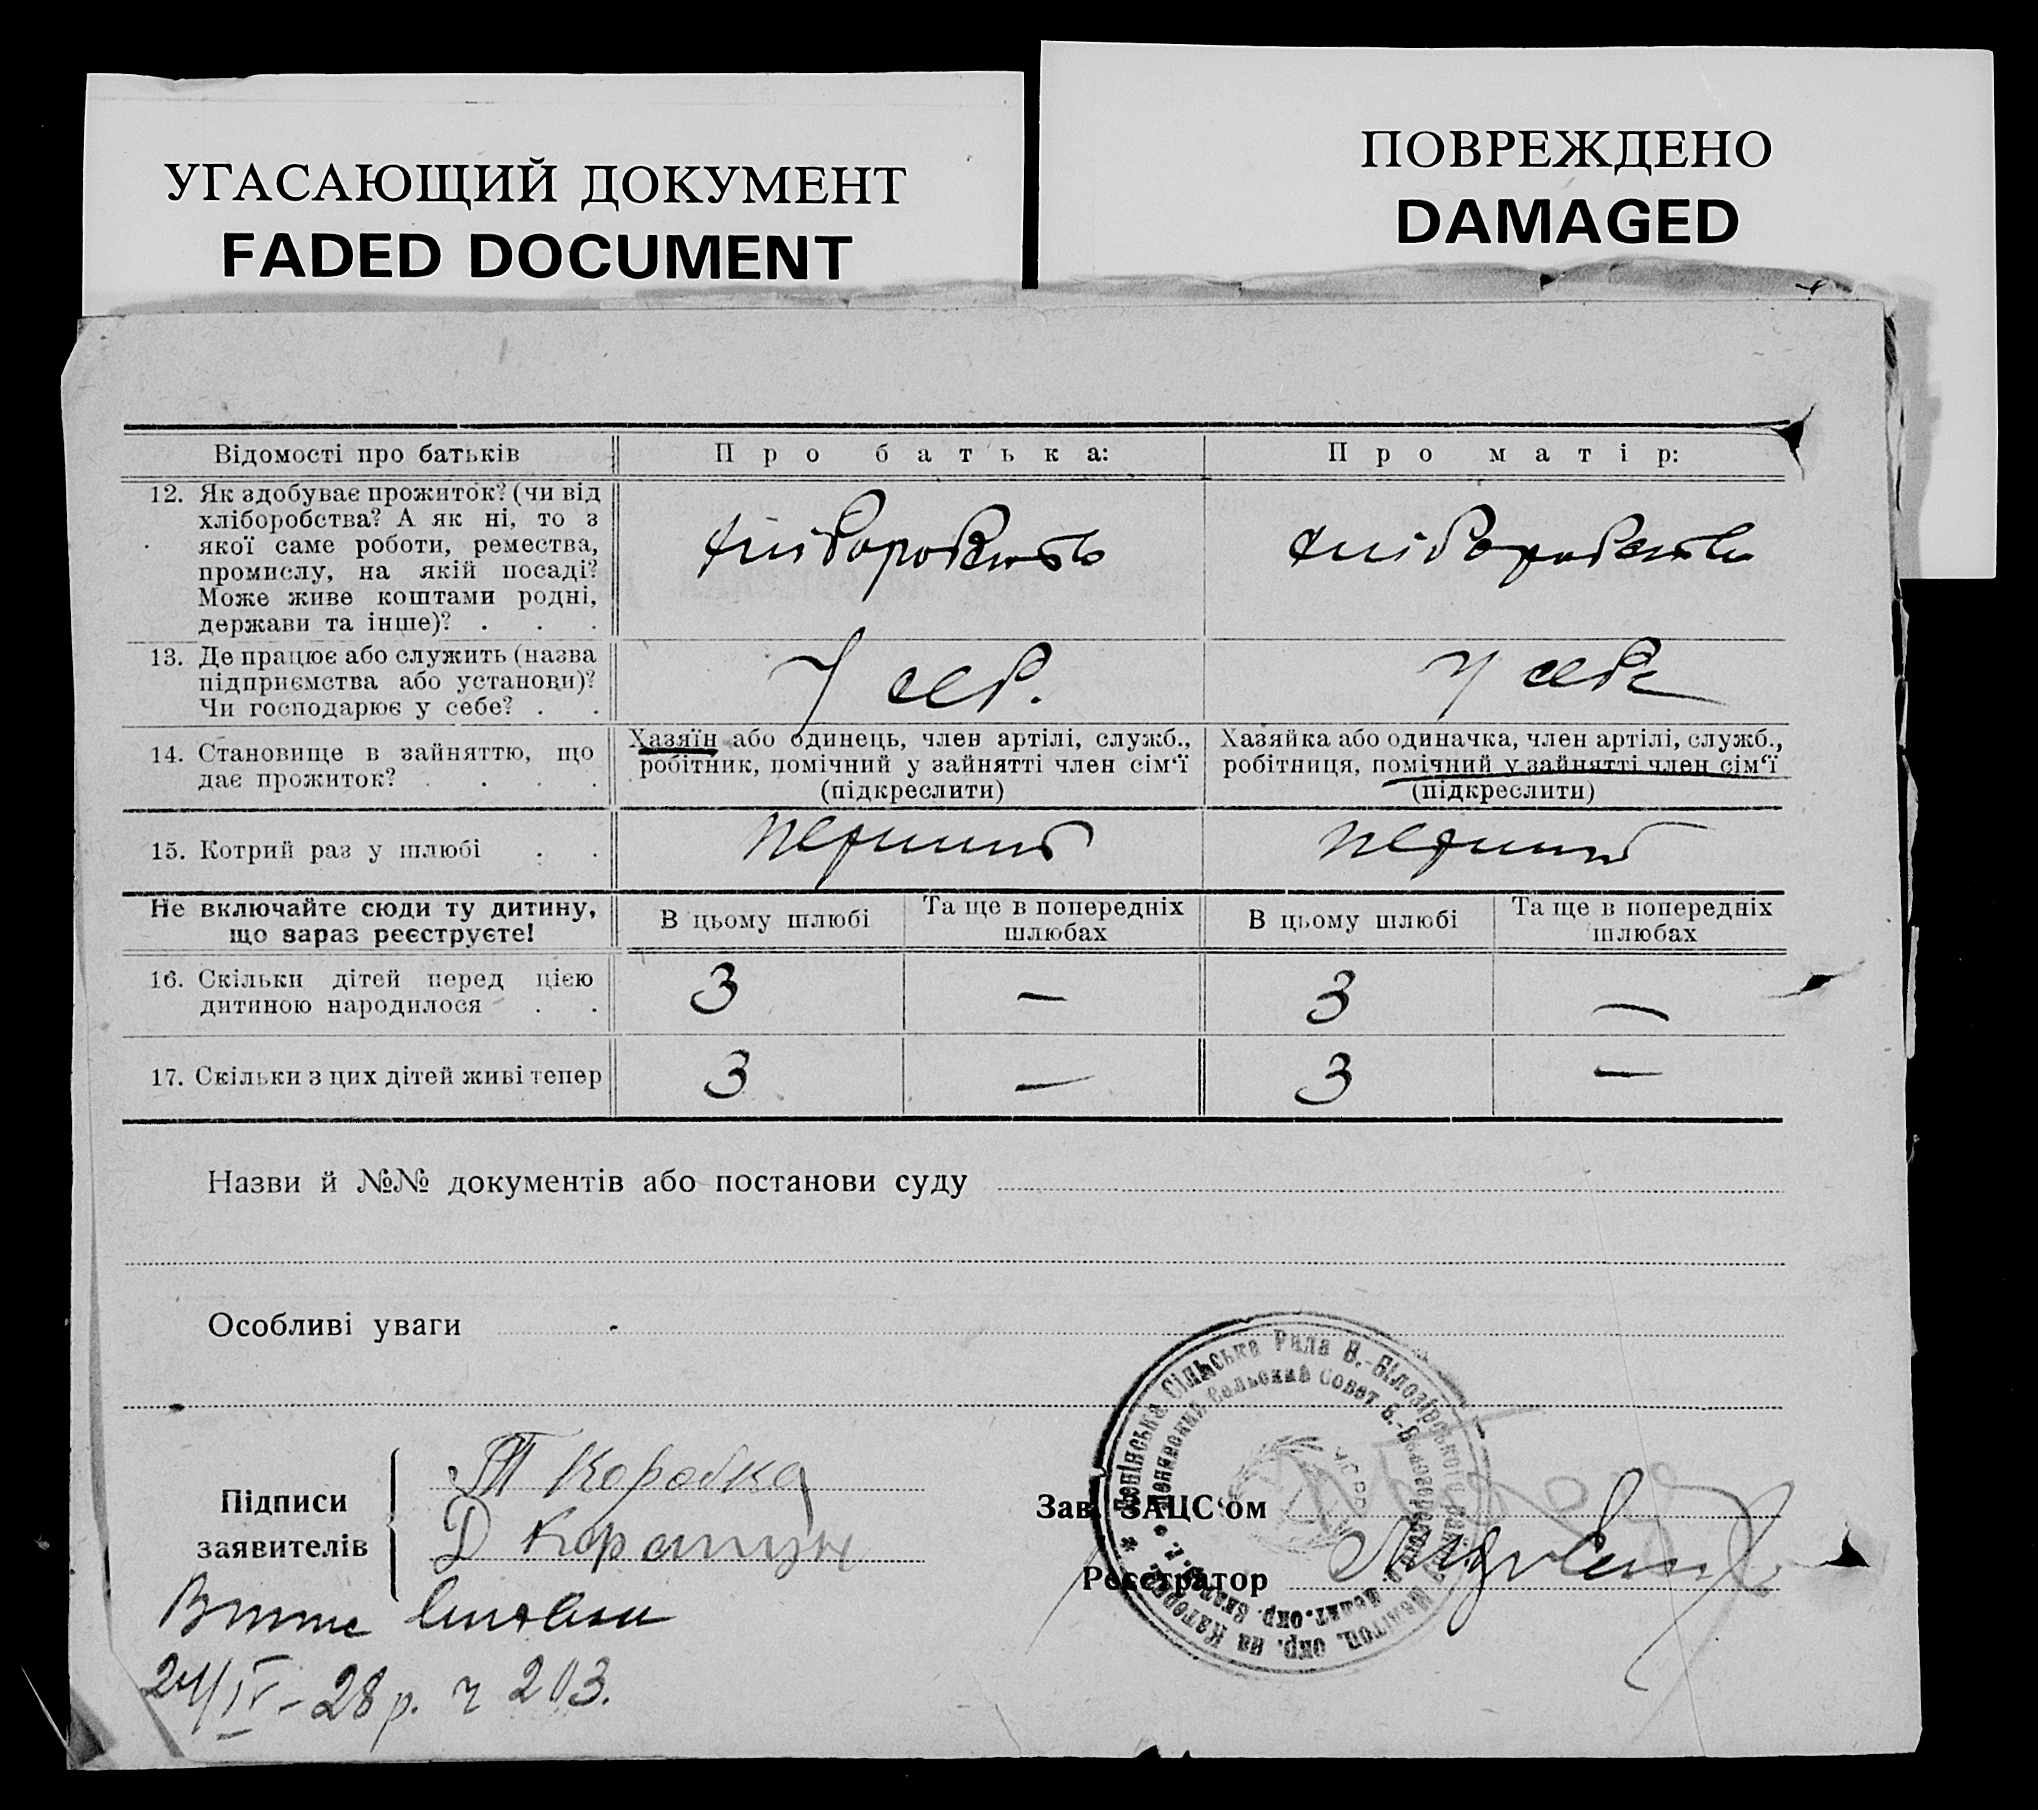 УГАСАЮЩИЙ ДОКУМЕНТ
FADED DOCUMENT
ПОВРЕЖДЕНО
DAMAGED
Відомості про батьків
Про батька:
Про матір:
12. Як здобуває прожиток? (чи від
хліборобства? А як ні, то з
якої саме роботи, ремества,
промислу, на якій посаді?
Може живе коштами родні,
держави та інше)? . . .
хліборобств
хліборобство
13. Де працює або служить (назва
підприємства або установи)?
Чи господарює у себе? . .
У себ.
у себе
14. Становище в зайняттю, що
дає прожиток? . . . .
Хазяїн або одинець, член артілі, служб.,
робітник, помічний у зайнятті член сім‘ї
(підкреслити)
Хазяйка або одиначка, член артілі, служб.,
робітниця, помічний у зайнятті член сім‘ї
(підкреслити)
15. Котрий раз у шлюбі . .
перший
перший
Не включайте сюди ту дитину,
що зараз реєструєте!
В цьому шлюбі
Та ще в попередніх
шлюбах
В цьому шлюбі
Та ще в попередніх
шлюбах
16. Скільки дітей перед цією
дитиною народилося . .
3
—
3
—
17. Скільки з цих дітей живі тепер
3
—
3
—
Назви й №№ документів або постанови суду
Особливі уваги
Підписи
заявителів
Т Коробка
Д Коропун
Зав. ЗАЦС‘ом
Реєстратор
Сільська Рада В.-Білозірського
Сельский Совет Б.-Б
УСРР
24/IV-28 р. ч 203.